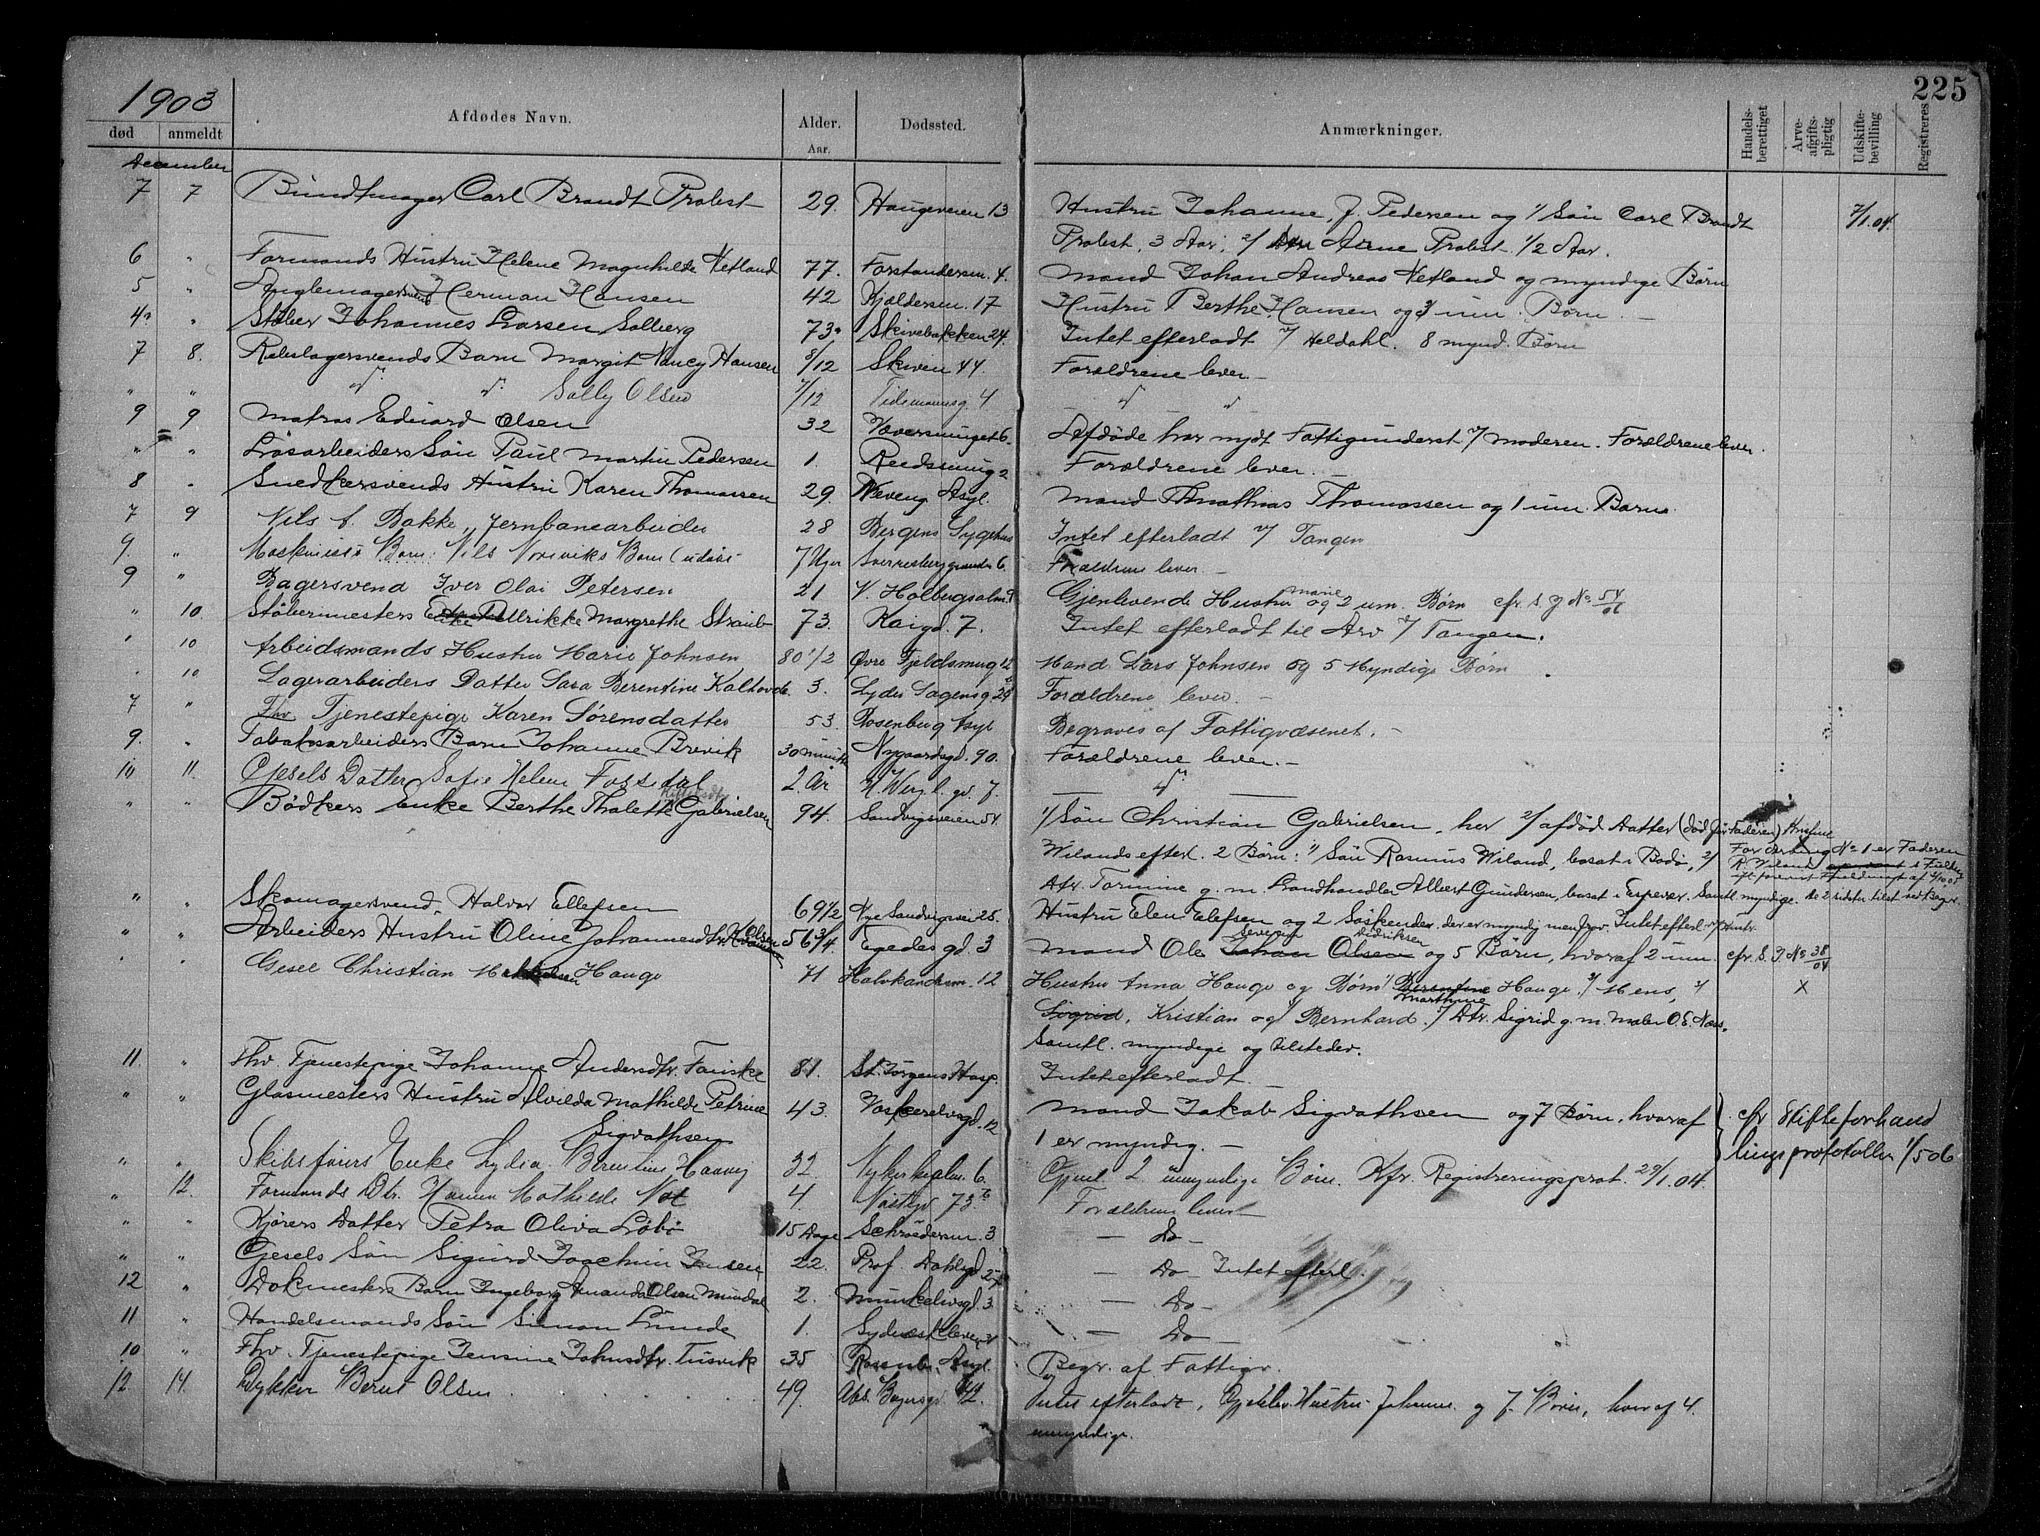 225
1903
død anmeldt Afdødes Navn. Alder. Aar. Dødssted. Anmærkninger. Handelsberettiget Arveafgiftspligtig Udskiftebevilling Registreres
December
7 7 Bundtmager Carl Brandt Probst 29. Haugeveien 13 Hustru Johanne, f. Pedersen og 1/ Søn Carl Brandt 7/1.04.
Probst, 3 Aar, 2/ Arne Probst 1/2 Aar.
6 " Formands Hustru Helene Magnhilde Netland 77. Forstandersm. 4. Mand Johan Andreas Netland og myndige Børn
5 " Herman Hansen 42 Kjeldersm. 17 Hustru Berthe Hansen og 3 um. Børn. —
4 " Støber Johannes Larsen Solberg 73. Skivebakken 24. Intet efterladt 7/ Heldahl. 8 mynd. Børn
7 8. Rebslagersvends Barn Margit Nancy Hansen 8/12 Skiven 44. Forældrene lever —
" " do do Sally Olsen 7/12 Tidemannsg. 4 do do
9 9 Matros Edvard Olsen 32 Væversmuget 6. Afdøde har nydt Fattigunderst 7/ moderen. Forældrene lever.
" " Løsarbeiders Søn Paul Martin Pedersen 1. Reedssmug 2 Forældrene lever. —
8 " Snedkersvends Hustru Karen Thomassen 29 Neveng. Asyl. Mand Mathias Thomassen og 1 um. Barn.
7 9 Nils A. Bakke, Jernbanearbeider 28 Bergens Sygehus Intet efterladt 7/ Tangen
9. " Maskinists Barn: Nils Noreviks Barn (udøbt 7 Uger Sverresborggaden 6. Forældrene lever. —
9 " Bagersvend Iver Olai Petersen 21 V. Holbergsalm. Gjenlevende Hustru Marie og 2 um. Børn cfr. S. J. No 54/06
" 10. Støbermesters Enke Ullrikke Margrethe Straub 73. Kaigd. 7. Intet efterladt til Arv 7/ Tangen.
" 10 Arbeidsmands Hustru Marie Johnsen 80 1/2 Øvre Fjeldsmug 12 Mand Lars Johnsen og 5 Myndige Børn.
" 10 Lagerarbeiders Datter Sara Berentine Kaltved. 3. Lyder Sagensg. 29 Forældrene lever —
7 " Fhv Tjenestepige Karen Sørensdatter 53 Rosenberg Asyl Begraves af Fattigvæsenet. —
9. " Tobaksarbeiders Barn Johanne Brevik 30 minutter Nygaardsgd. 90. Forældrene lever. —
10 11. Gjesels Datter Sofie Helene Forsdal 2 Ar H. Wergl. gd. 7. do
" " Bødkers Enke Berthe Thalette Gabrielsen 94. Sandvigsveien 54 1/ Søn Christian Gabrielsen, her 2/ afdød Datter (død før Faderen) Kristine
Wilands efterl. 2 Børn: 1/ Søn Rasmus Wiland, bosat i Bodø, 2/ For arving No 1 er Faderen R. Wiland
Dtr. Tormine g. m. Landhandler Albert Gundersen, bosat i Espevær. Samtl. myndige. De 2 sidster tilst.
" " Skomagersvend Halvor Ellefsen 69 1/2 Nye Sandvigsvei 25. Hustru Elen Elefsen og 2 Søskender der er myndig men Intet efterl. 7/ Hustr.
" " Arbeiders Hustru Oline Johannesdtr. Olsen 56 3/4 Egedes gd. 3 Mand Ole Severin Didriksen Johan Olsen og 5 Børn, hvoraf 2 um. cfr. S. J. No 38/04
" " Gesel Christian Hauge 71 Halvkandesm. 12 Hustru Anna Hauge og Børn 1/ Berentine Marthine Hauge, 2/ Mens, 3/ X
Sigrid, Kristian og Bernhard. Dtr. Sigrid g. m. Maler O. E. Næss.
Samtl. myndige og tilsteder.
11 " Fhv. Tjenestepige Johanne Andersdtr. Fauske 81. St. Jørgens Hosp. Intet efterladt. —
" " Glasmesters Hustru Alvilda Mathilde Petrine Sigvathsen 43. Vaskerelvsgd. 12 Mand Jakob Sigvathsen og 7 Børn, hvoraf cfr Skifteforhand
1 er myndig. — lingsprotokollen 1/5 06
" " Skibsførers Enke Lydia Berentine Haavig 32 Nykirkealm. 6. Gjenl. 2 umyndige Børn. Kfr. Registreringsprot. 29/1.04.
" 12. Formands Dtr. Hanna Mathilde 4. Nøstegd 73 Forældrene lever —
" " Kjørers Datter Petra Oliva Løbø 15 Dage Schrødersm. 3 — Do —
" " Gjesels Søn Sigurd Joachim Jensen 22. Prof. Dahlsgd 27 — Do — Intet efterl.
12 " Dokmesters Barn Ingeborg Amanda Olsen Mundal 2. Munkelivsgd. 3 — Do —
11 " Handelsmands Søn Simon Lunde 1. Sydnæskleven — Do —
10 " Fhv. Tjenestepige Jensine Johnsdtr. Tusvik 35 Rosenb. Asyl. Begr. af Fattigv.
12 14. Dykker Bernt Olsen 49. Abs. Beyersgd 42. Intet efterladt, Gjenlev. Hustru Johanne og 7 Børn, hvoraf 4
umyndige.